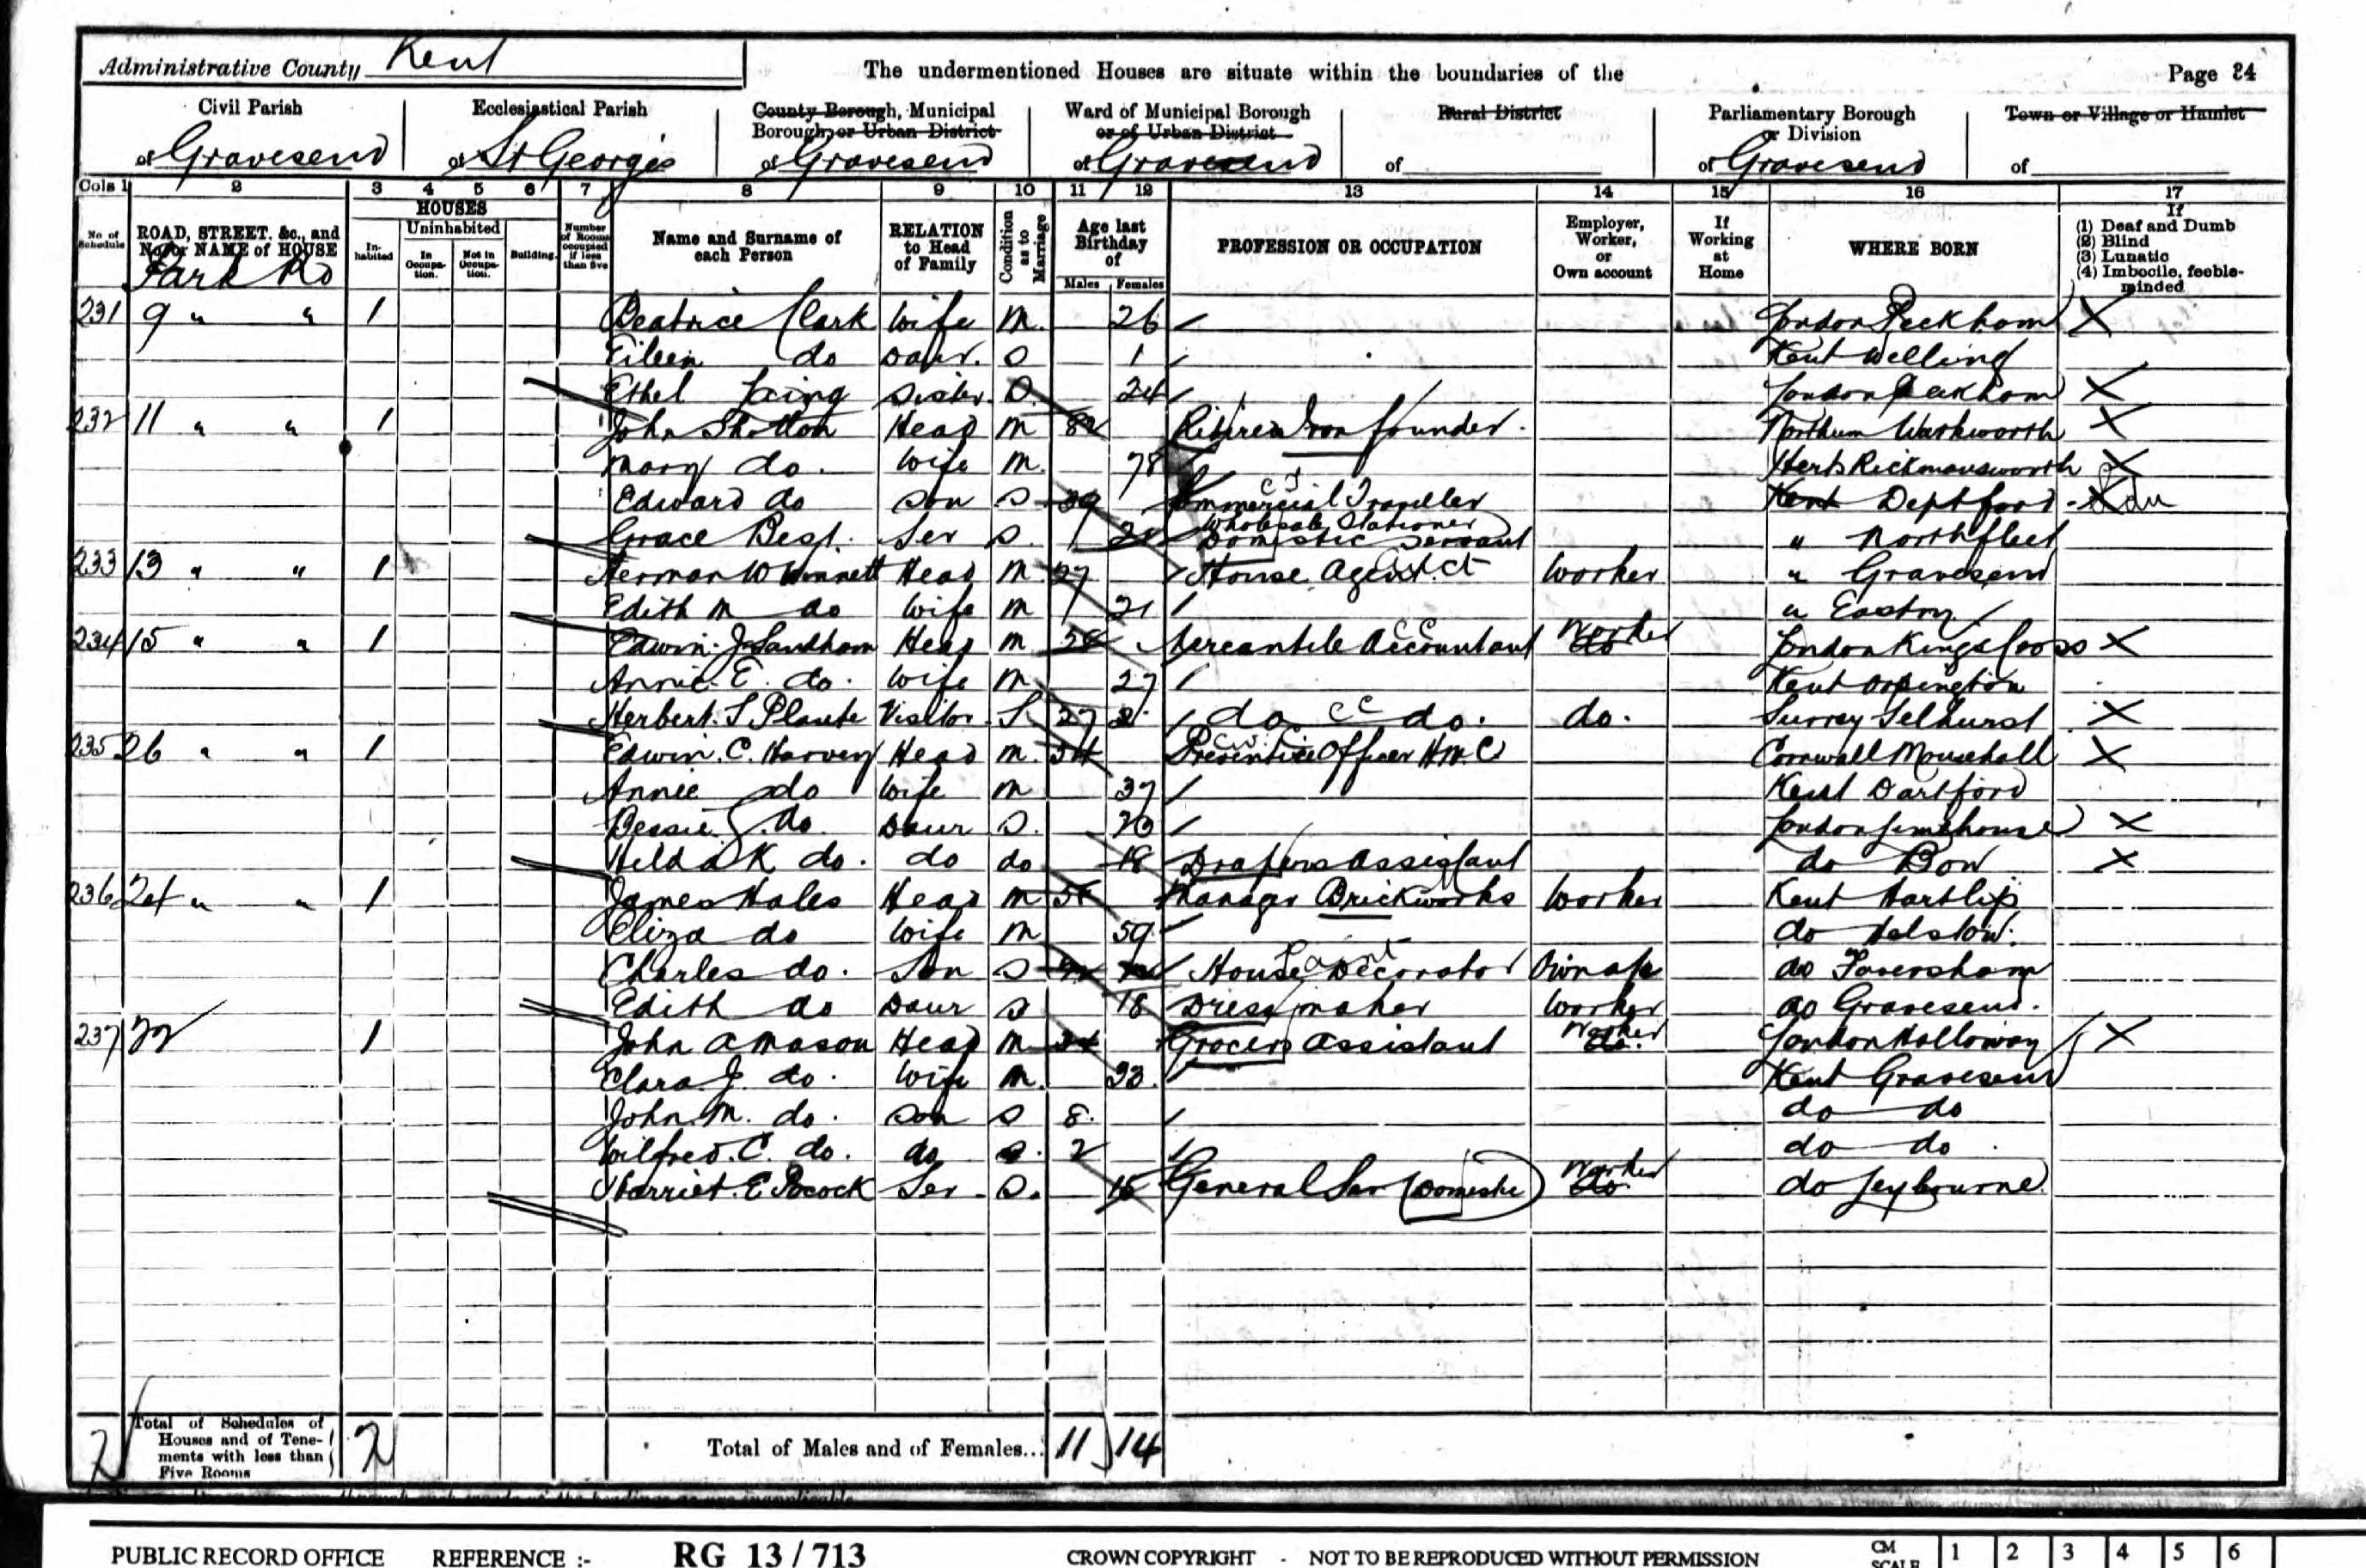 Administrative County Kent
The undermentioned Houses are situate within the boundaries of the
Page 24
Civil Parish
of Gravesend
Ecclesiastical Parish
of St Georges
County Borough, Municipal
Borough, or Urban District
of Gravesend
Ward of Municipal Borough
or of Urban District
of Gravesend
Rural District
of
Parliamentary Borough
or Division
of Gravesend
Town or Village or Hamlet
of
Cols 1 2 3 4 5 6 7 8 9 10 11 12 13 14 15 16 17
No of Schedule
ROAD, STREET, &c., and No. or NAME of HOUSE
HOUSES
In-habited
Uninhabited
In Occupa-tion.
Not in Occupa-tion.
Building.
Number of Rooms occupied if less than five
Name and Surname of each Person
RELATION to Head of Family
Condition as to Marriage
Age last Birthday of
Males Females
PROFESSION OR OCCUPATION
Employer, Worker, or Own account
If Working at Home
WHERE BORN
If
(1) Deaf and Dumb
(2) Blind
(3) Lunatic
(4) Imbecile, feeble-minded
Park Rd
231 9 " " 1 Beatrice Clark Wife M. 26 London Peckham X
Eileen do Daur. S 1 Kent Welling
Ethel Laing Sister. S. 24 London Peckham X
232 11 " " 1 John Shotton Head M 82 Retired Iron founder. Northum Warkworth X
Mary do. Wife M. 78 Herts Rickmansworth X
Edward do Son S 39 Commercial Traveller Kent Deptford X
Wholesale Stationer
Grace Best. Ser S. Domestic Servant " Northfleet
233 13 " " 1 Herman W Winnett Head M 27 House Agent Worker " Gravesend
Edith M do Wife M 21 " Eastry
234 15 " " 1 Edwin J Sandham Head M 28 Mercantile Accountant Worker London Kings Cross X
Annie E. do. Wife M 27 Kent Orpington
Herbert. S Plaute Visitor S. 27 do cc do. do. Surrey Selhurst X
235 26 " " 1 Edwin. C. Harvey Head M. 54 Preventive Officer H.M.C Cornwall Mousehall X
Annie do Wife M 37 Kent Dartford
Bessie J. do. Daur S. 20 London Limehouse X
Hilda K do. do do 18 Drapers Assistant do Bow X
236 24 " " 1 James Hales Head M Manager Brickworks Worker Kent Hartlip
Eliza do Wife M 59 do Halstow.
Charles do. Son S House Decorator Own a/c do Faversham
Edith do Daur S 18 Dressmaker Worker do Gravesend.
237 22 1 John A Mason Head M 34 Grocers Assistant Worker London Holloway X
Clara. J. do. Wife M. 33. Kent Gravesend
John. M. do. Son S 8. do do
Wilfred. C. do. do S. 2 do do
Harriet. E Pocock Ser. S. 15 General Ser (Domestic) Worker do Leybourne
7 Total of Schedules of Houses and of Tene-ments with less than Five Rooms 7
Total of Males and of Females... 11 14
PUBLIC RECORD OFFICE REFERENCE :- RG 13 / 713 CROWN COPYRIGHT - NOT TO BE REPRODUCED WITHOUT PERMISSION CM SCALE 1 2 3 4 5 6